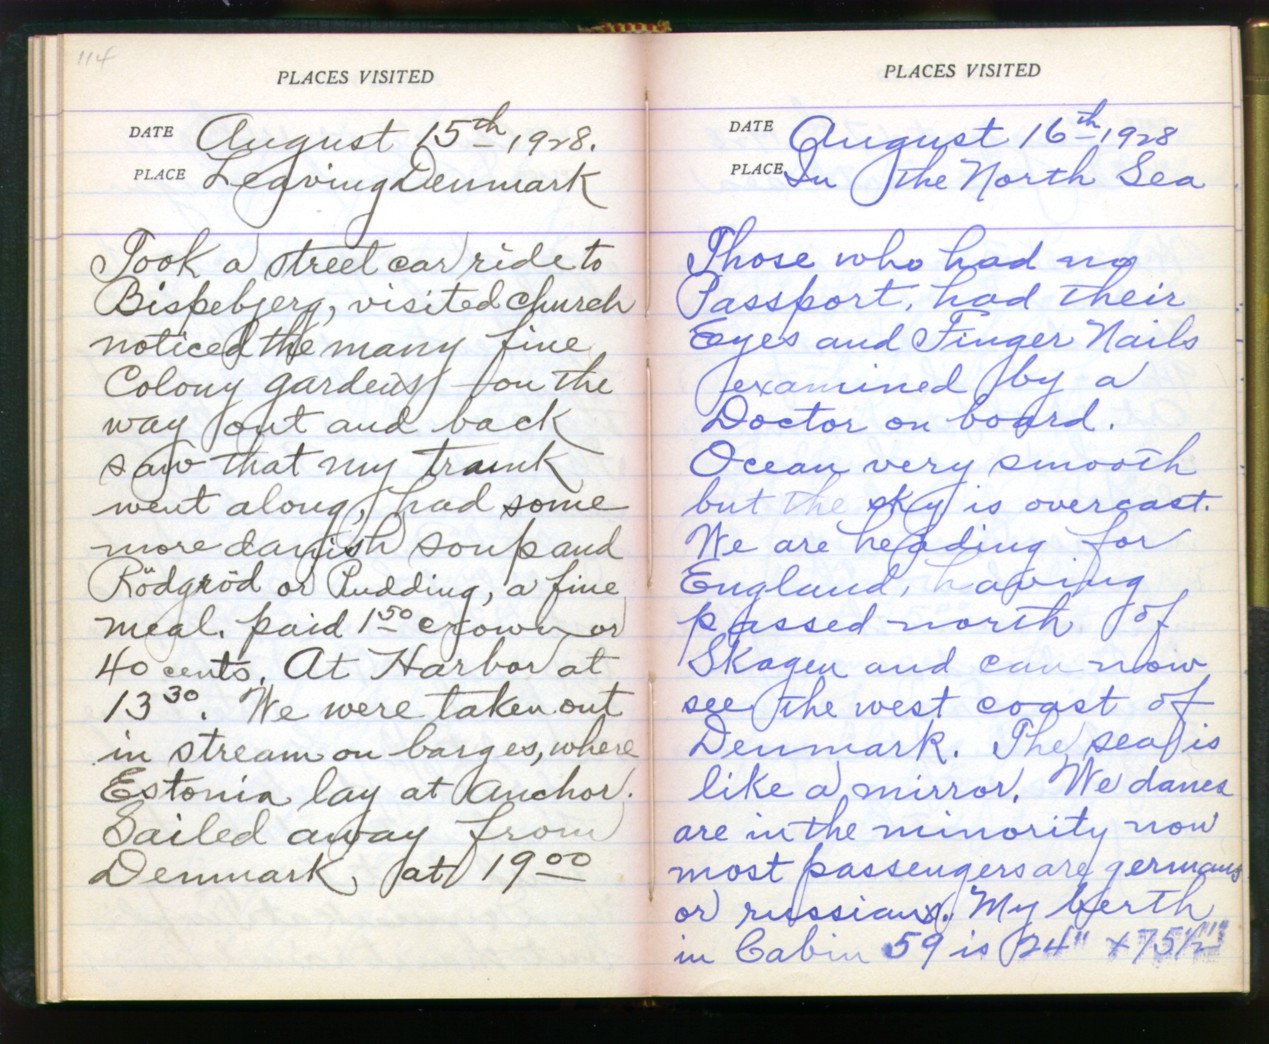 114
PLACES VISITED
DATE August 15th, 1928.
PLACE Leaving Denmark
Took a street car ride to
Bispebjerg, visited church
noticed the many fine
Colony gardens on the
way out and back
saw that my trunk
went along, had some
more danish soup and
Rödgröd or Pudding, a fine
meal. paid 1 50 crown or
40 cents. At Harbor at
13 30. We were taken out
in stream on barges, where
Estonia lay at anchor.
Sailed away from
Denmark at 19 00
PLACES VISITED
DATE August 16th, 1928
PLACE In the North Sea
Those who had no
Passport, had their
Eyes and Finger Nails
examined by a
Doctor on board.
Ocean very smooth
but the sky is overcast.
We are heading for
England, having
passed north of
Skagen and can now
see the west coast of
Denmark. The sea is
like a mirror. We danes
are in the minority now
most passengers are germans
or russians. My berth
in Cabin 59 is 24" x 75 1/2"